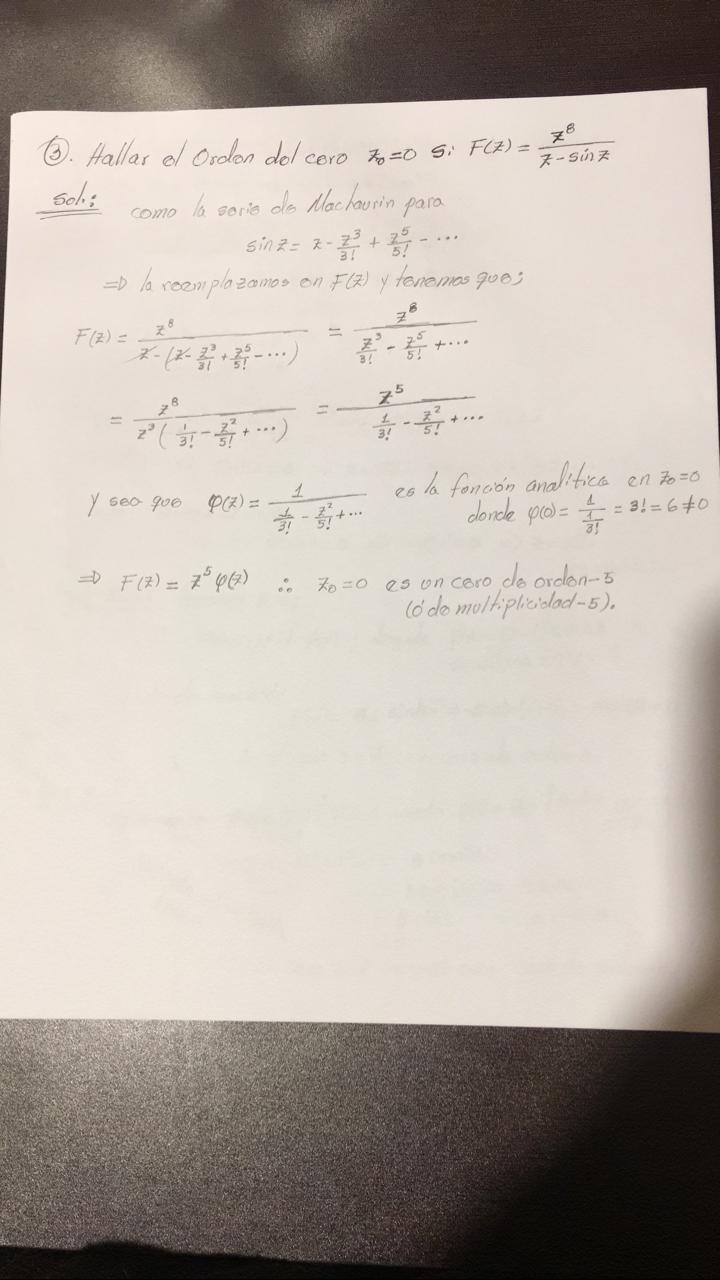 ③. Hallar el Orden del cero z₀=0 si F(z) = z⁸/(z - sin z)
Sol.: como la serie de Maclaurin para
sin z = z - z³/3! + z⁵/5! - ...
⇒ la reemplazamos en F(z) y tenemos que;
F(z) = z⁸/(z - (z - z³/3! + z⁵/5! - ...)) = z⁸/(z³/3! - z⁵/5! + ...)
= z⁸/(z³(1/3! - z²/5! + ...)) = z⁵/(1/3! - z²/5! + ...)
y sea que φ(z) = 1/(1/3! - z²/5! + ...) es la función analítica en z₀=0
donde φ(0) = 1/(1/3!) = 3! = 6 ≠ 0
⇒ F(z) = z⁵ φ(z) ∴ z₀=0 es un cero de orden-5
(ó de multiplicidad-5).